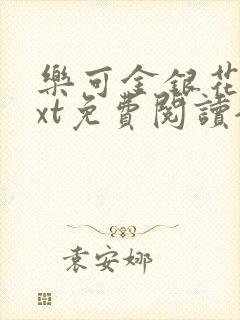 樂可金銀花
xt免費閱讀
袁安娜